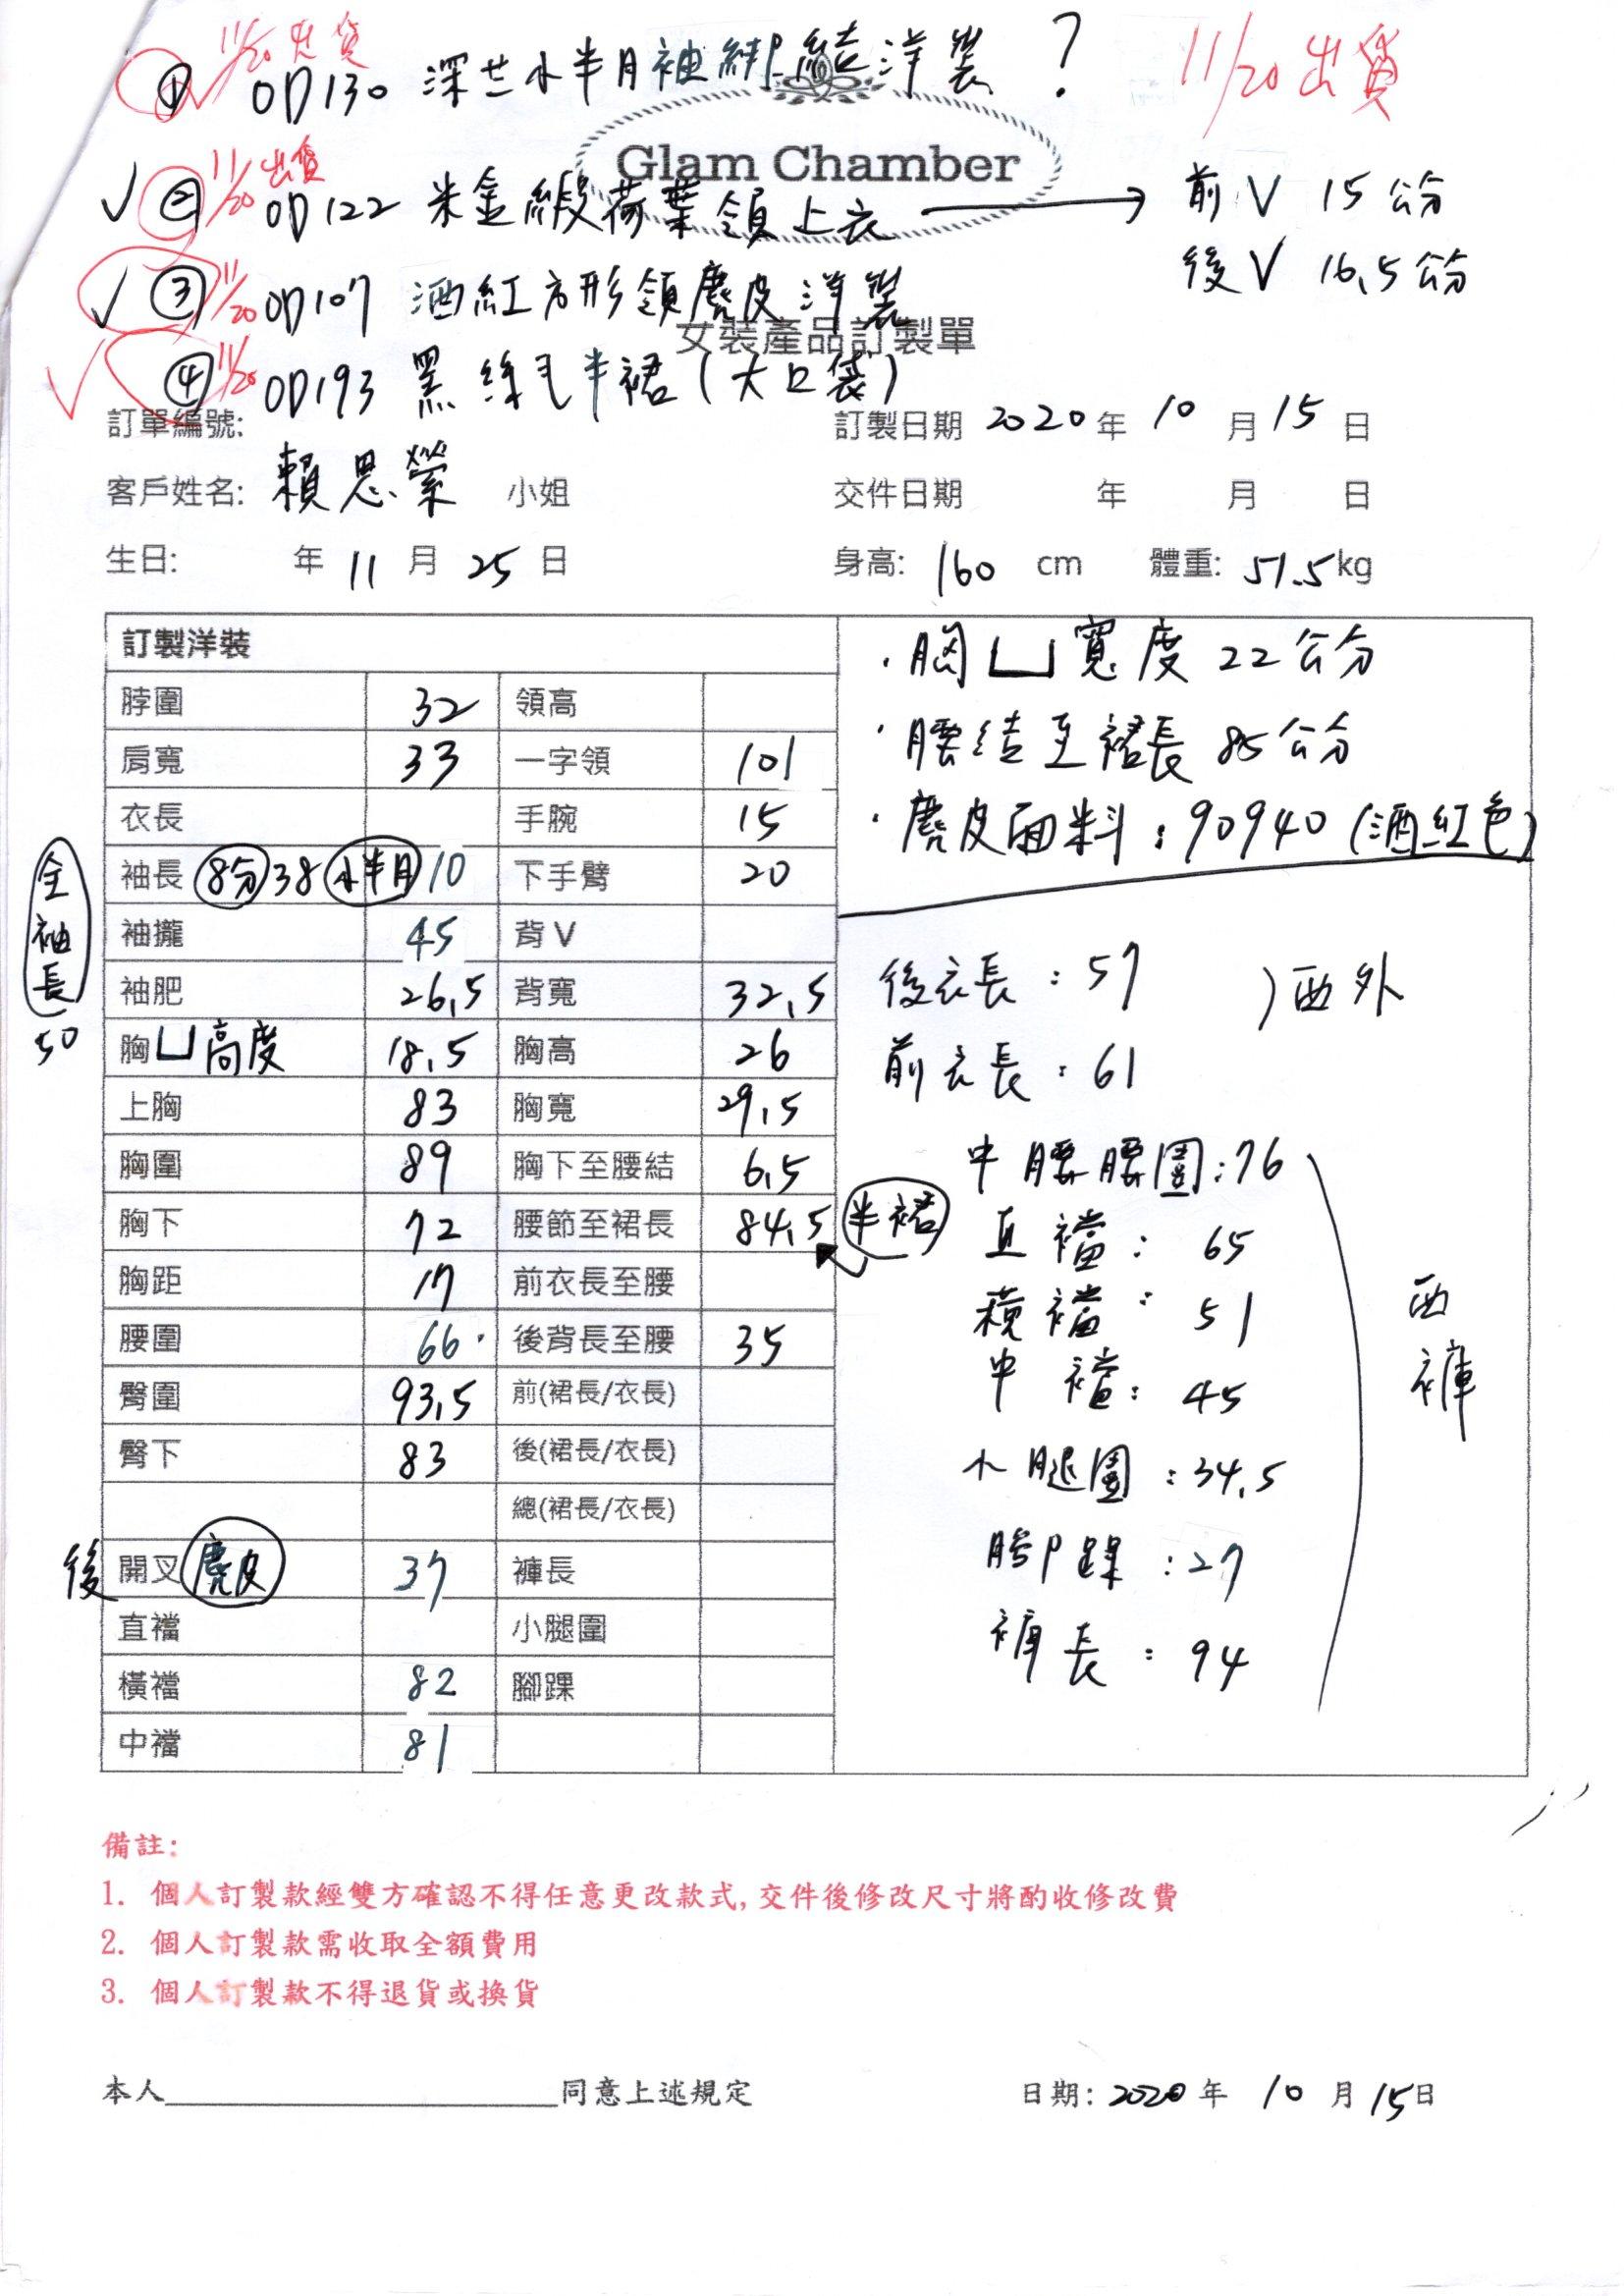 11/20 出貨
① OD130 深芷小半月袖綁結洋裝 ? 11/20 出貨
Glam Chamber
✓ ② 11/20 出貨 OD122 米金緞荷葉領上衣 → 前V 15公分
後V 16.5公分
✓ ③ 11/20 OD107 酒紅方形領麂皮洋裝
女裝產品訂製單
✓ ④ 11/20 OD193 黑絲毛半裙(大口袋)
訂單編號: 訂製日期 2020 年 10 月 15 日
客戶姓名: 賴思縈 小姐 交件日期 年 月 日
生日: 年 11 月 25 日 身高: 160 cm 體重: 51.5 kg
訂製洋裝
脖圍 32 領高
肩寬 33 一字領 101
衣長 手腕 15
袖長 8分 38 小半月 10 下手臂 20
全袖長 50
袖攏 45 背V
袖肥 26.5 背寬 32.5
胸凵高度 18.5 胸高 26
上胸 83 胸寬 29.5
胸圍 89 胸下至腰結 6.5
胸下 72 腰節至裙長 84.5 半裙
胸距 17 前衣長至腰
腰圍 66. 後背長至腰 35
臀圍 93.5 前(裙長/衣長)
臀下 83 後(裙長/衣長)
總(裙長/衣長)
後 開叉 麂皮 37 褲長
直襠 小腿圍
橫襠 82 腳踝
中襠 81
·胸凵寬度 22公分
·腰結至裙長 85公分
·麂皮面料:90940(酒紅色)
後衣長:57 )西外
前衣長:61
中腰腰圍:76
直襠: 65
橫襠: 51
中襠: 45
小腿圍:34.5
腳踝:27
褲長:94
西褲
備註:
1. 個人訂製款經雙方確認不得任意更改款式,交件後修改尺寸將酌收修改費
2. 個人訂製款需收取全額費用
3. 個人訂製款不得退貨或換貨
本人____________________同意上述規定 日期: 2020 年 10 月 15 日